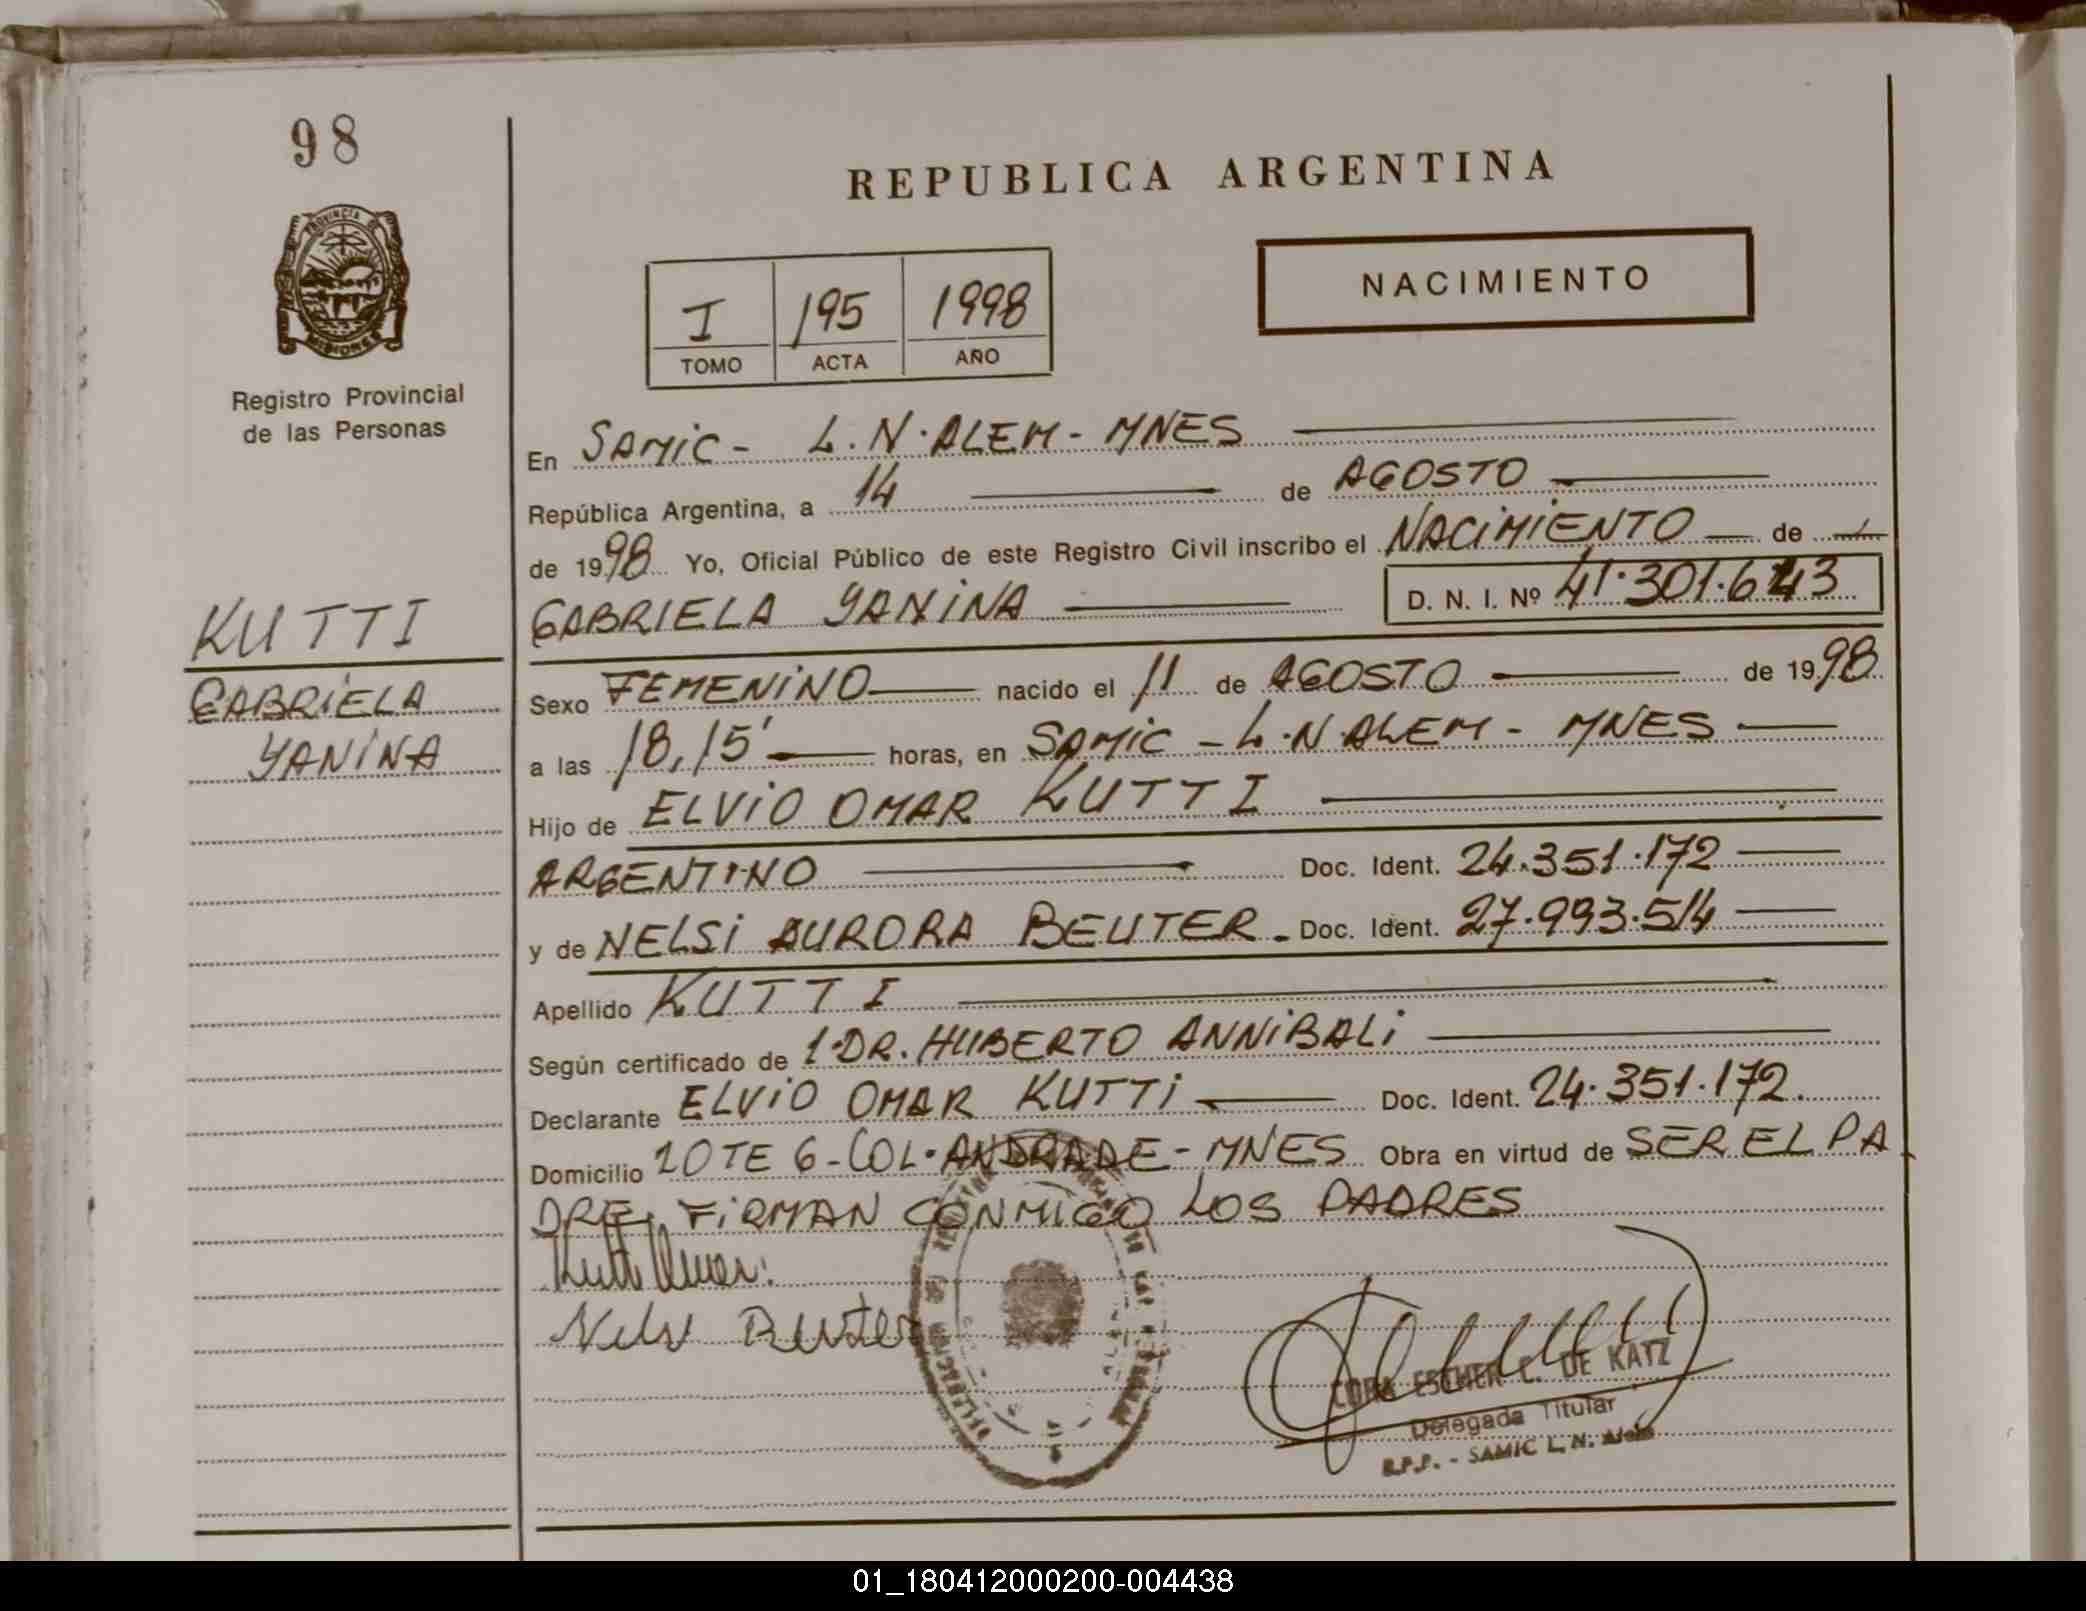 98
PROVINCIA DE
MISIONES
Registro Provincial
de las Personas
KUTTI
GABRIELA
YANINA
REPUBLICA ARGENTINA
I 195 1998
TOMO ACTA AÑO
NACIMIENTO
En SAMIC - L.N.ALEM - MNES
República Argentina, a 14 de AGOSTO
de 1998 Yo, Oficial Público de este Registro Civil inscribo el NACIMIENTO de
GABRIELA YANINA D. N. I. Nº 41.301.643
Sexo FEMENINO nacido el 11 de AGOSTO de 1998
a las 18,15' horas, en SAMIC - L.N.ALEM - MNES
Hijo de ELVIO OMAR KUTTI
ARGENTINO Doc. Ident. 24.351.172
y de NELSI AURORA BEUTER - Doc. Ident. 27.993.514
Apellido KUTTI
Según certificado de 1.DR. HUBERTO ANNIBALI
Declarante ELVIO OMAR KUTTI Doc. Ident. 24.351.172.
Domicilio LOTE 6 - COL. ANDRADE - MNES Obra en virtud de SER EL PA
DRE. FIRMAN CONMIGO LOS PADRES
Kutti Omar.
Nelsi Beuter
DELEGACION
CORA ESTHER C. DE KATZ
Delegada Titular
R.P.P. - SAMIC L. N. Alem
01_180412000200-004438